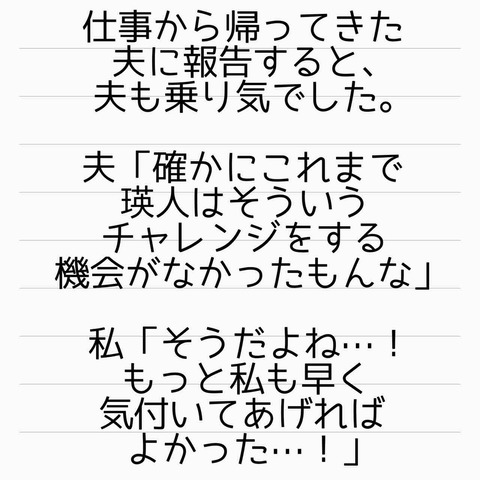 仕事から帰ってきた
夫に報告すると、
夫も乗り気でした。
夫「確かにこれまで
瑛人はそういう
チャレンジをする
機会がなかったもんな」
私「そうだよね…！
もっと私も早く
気付いてあげれば
よかった…！」